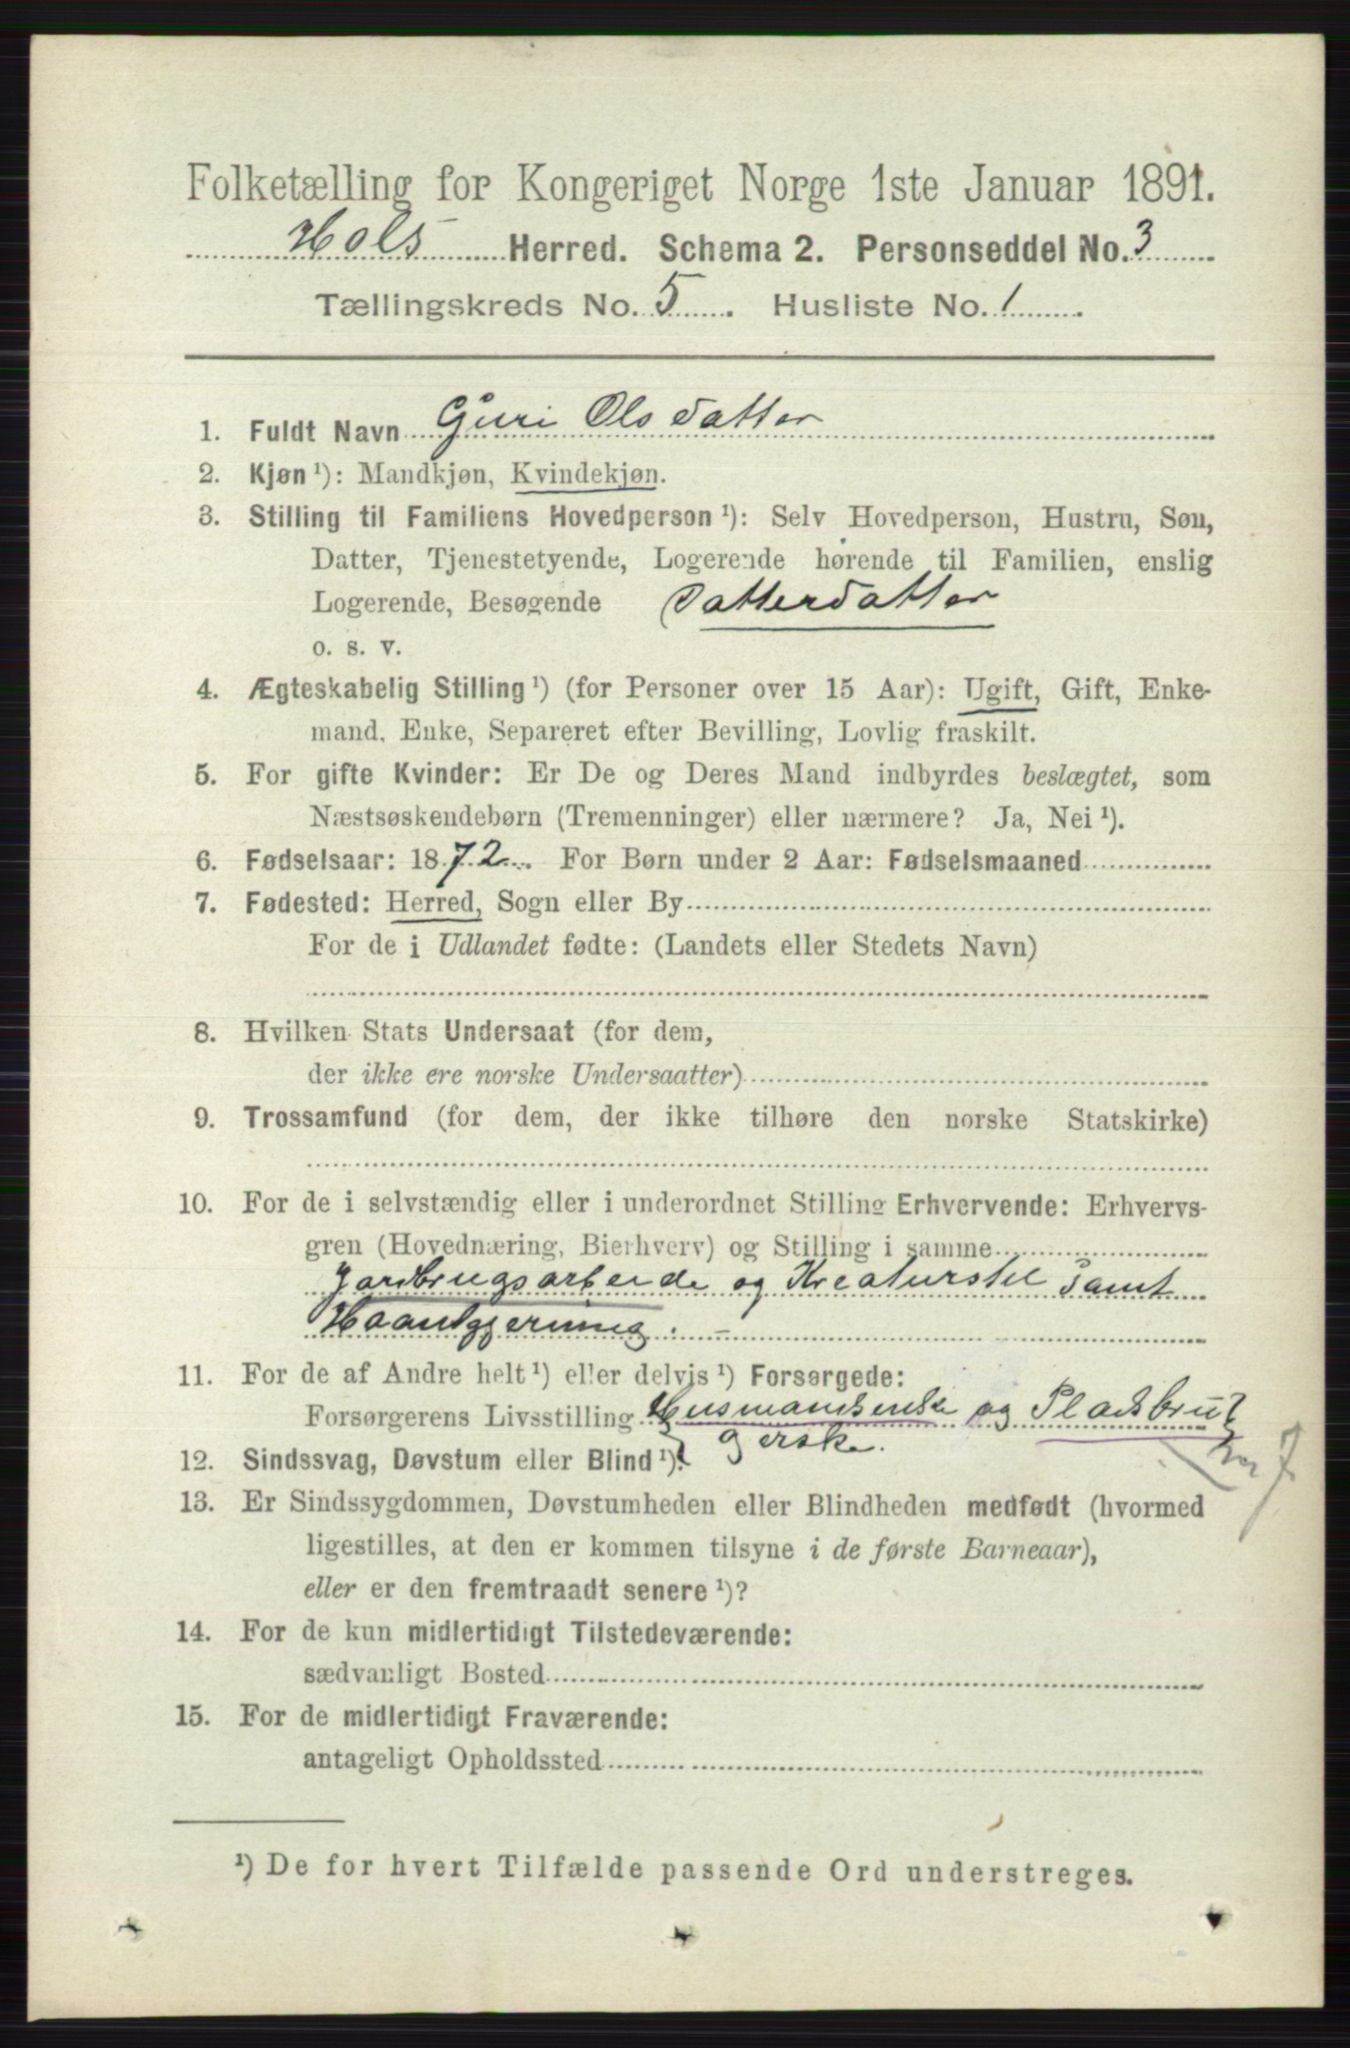 Folketælling for Kongeriget Norge 1ste Januar 1891.
Hols Herred. Schema 2. Personseddel No. 3
Tællingskreds No. 5. Husliste No. 1.
1. Fuldt Navn Guri Olsdatter
2. Kjøn ¹): Mandkjøn, Kvindekjøn.
3. Stilling til Familiens Hovedperson ¹): Selv Hovedperson, Hustru, Søn,
Datter, Tjenestetyende, Logerende hørende til Familien, enslig
Logerende, Besøgende Datterdatter
o. s. v.
4. Ægteskabelig Stilling ¹) (for Personer over 15 Aar): Ugift, Gift, Enke-
mand, Enke, Separeret efter Bevilling, Lovlig fraskilt.
5. For gifte Kvinder: Er De og Deres Mand indbyrdes beslægtet, som
Næstsøskendebørn (Tremenninger) eller nærmere? Ja, Nei ¹).
6. Fødselsaar: 1872. For Børn under 2 Aar: Fødselsmaaned
7. Fødested: Herred, Sogn eller By
For de i Udlandet fødte: (Landets eller Stedets Navn)
8. Hvilken Stats Undersaat (for dem,
der ikke ere norske Undersaatter)
9. Trossamfund (for dem, der ikke tilhøre den norske Statskirke)
10. For de i selvstændig eller i underordnet Stilling Erhvervende: Erhvervs-
gren (Hovednæring, Bierhverv) og Stilling i samme
Jordbrugsarbeide og Kreaturstel samt
Haandgjerning.
11. For de af Andre helt ¹) eller delvis ¹) Forsørgede:
Forsørgerens Livsstilling Husmandsenke og Pladsbru
gerske.
12. Sindssvag, Døvstum eller Blind ¹).
13. Er Sindssygdommen, Døvstumheden eller Blindheden medfødt (hvormed
ligestilles, at den er kommen tilsyne i de første Barneaar),
eller er den fremtraadt senere ¹)?
14. For de kun midlertidigt Tilstedeværende:
sædvanligt Bosted
15. For de midlertidigt Fraværende:
antageligt Opholdssted
¹) De for hvert Tilfælde passende Ord understreges.